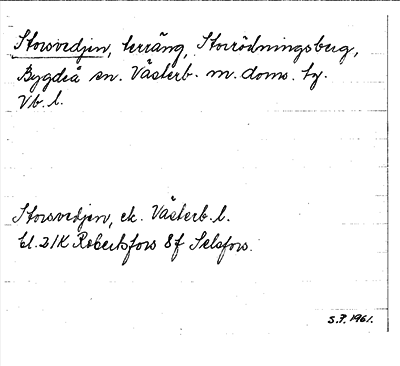 Storsvedjen, terräng, Storrödningsberg,
Bygdeå sn. Västerb. m. doms. tg.
Vb. l.
Storsvedjen, ek. Västerb. l.
bl. 21K Robertsfors 8f Selsfors.
S.F. 1961.